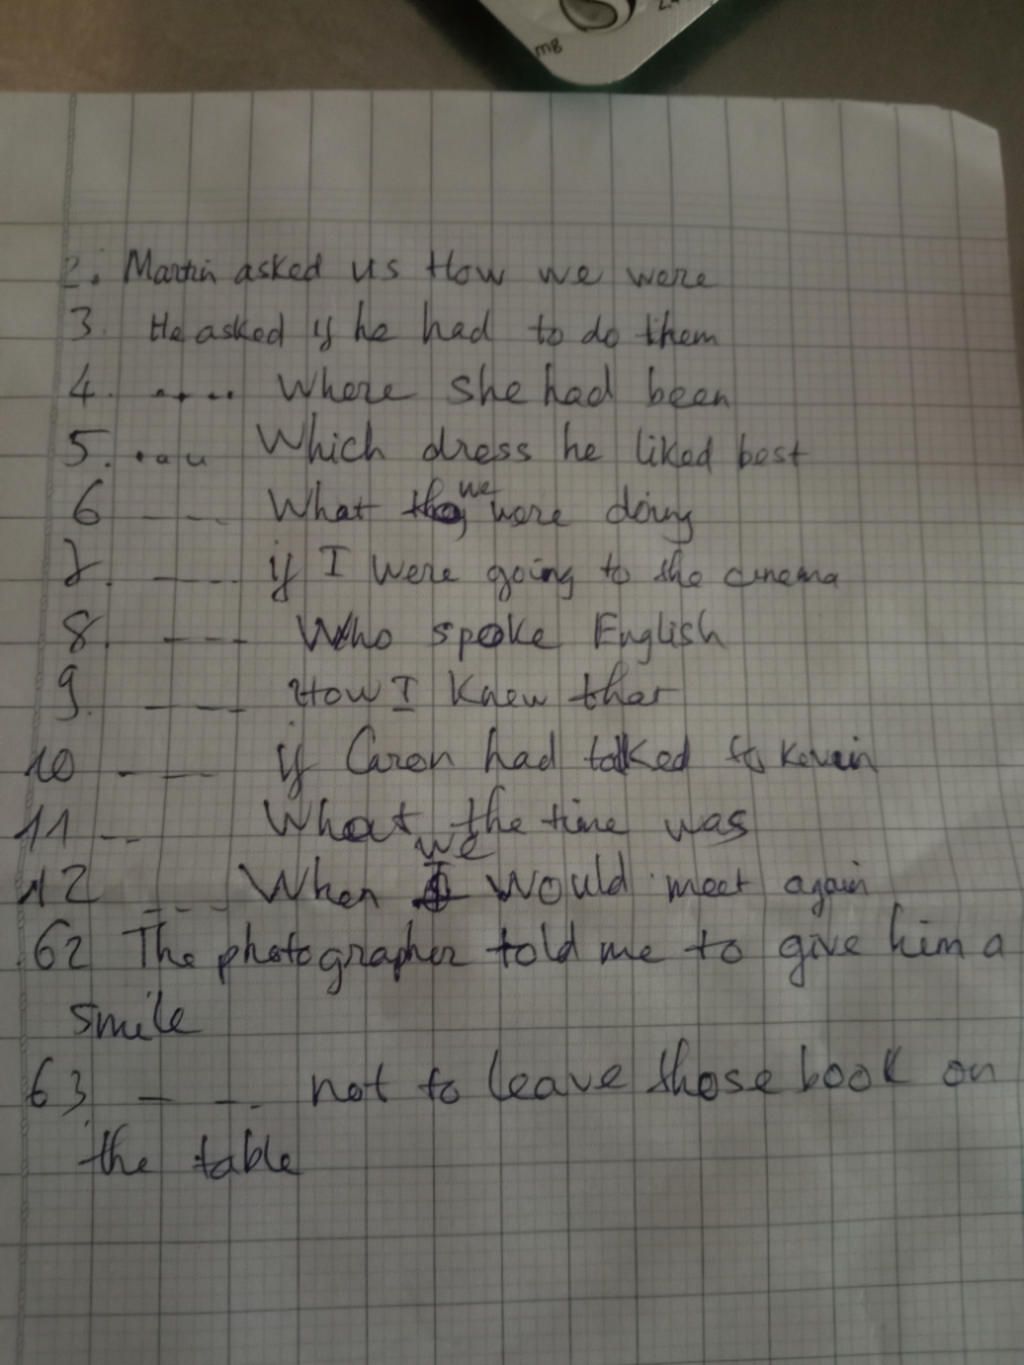 mg
2. Martin asked us How we were
3. He asked if he had to do them
4. ..... Where she had been
5. .... Which dress he liked best
6 --- What we were doing
7. --- if I were going to the cinema
8. --- Who spoke English
9. --- How I knew that
10 --- if Caron had talked to kevin
11 -- What the time was
12 --- When we would meet again
62 The photographer told me to give him a
smile
63 --- not to leave those book on
the table